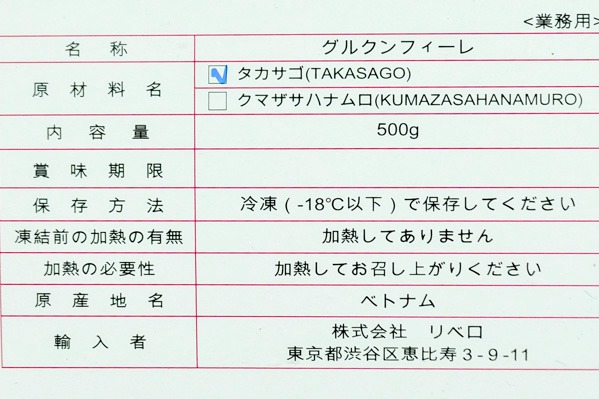 <業務用>
名称 グルクンフィーレ
原材料名 タカサゴ(TAKASAGO)
クマザサハナムロ(KUMAZASAHANAMURO)
内容量 500g
賞味期限
保存方法 冷凍(-18℃以下)で保存してください
凍結前の加熱の有無 加熱してありません
加熱の必要性 加熱してお召し上がりください
原産地名 ベトナム
輸入者 株式会社 リベロ
東京都渋谷区恵比寿3-9-11